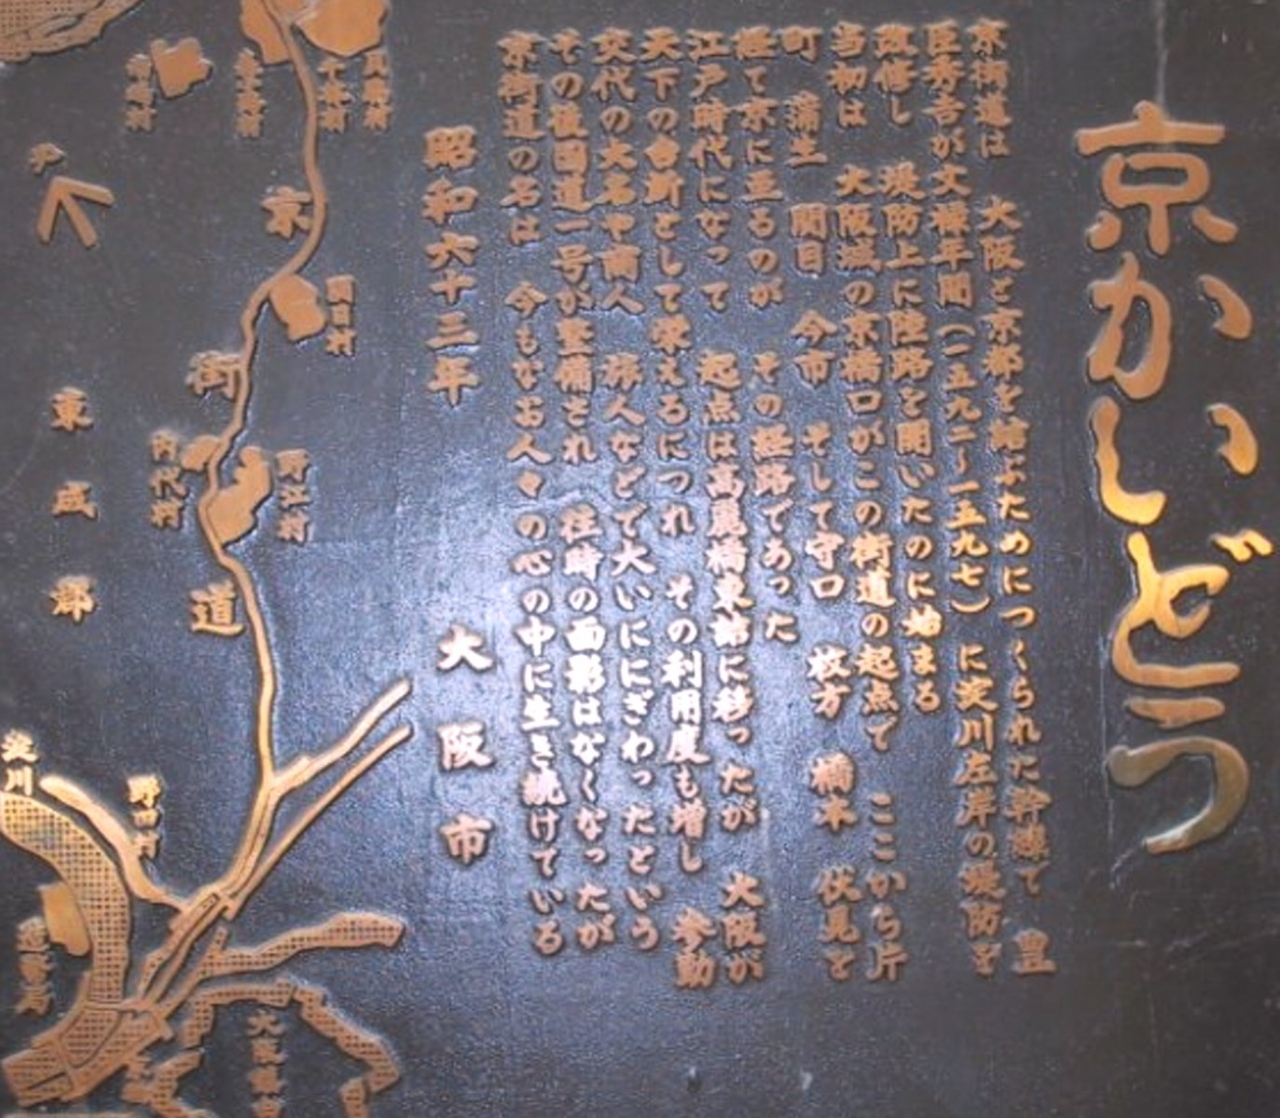 京かいどう
京街道は 大阪と京都を結ぶためにつくられた幹線で 豊
臣秀吉が文禄年間(一五九二〜一五九七)に淀川左岸の堤防を
改修し 堤防上に陸路を開いたのに始まる
当初は 大阪城の京橋口がこの街道の起点で ここから片
町 蒲生 関目 今市 そして守口 枚方 橋本 伏見を
経て京に至るのが その経路であった
江戸時代になって 起点は高麗橋東詰に移ったが 大阪が
天下の台所として栄えるにつれ その利用度も増し 参勤
交代の大名や商人 旅人などで大いににぎわったという
その後国道一号が整備され 往時の面影はなくなったが
京街道の名は 今もなお人々の心の中に生き続けている
昭和六十三年 大阪市
京街道
関目村
野江村
内代村
東成郡
淀川
野田村